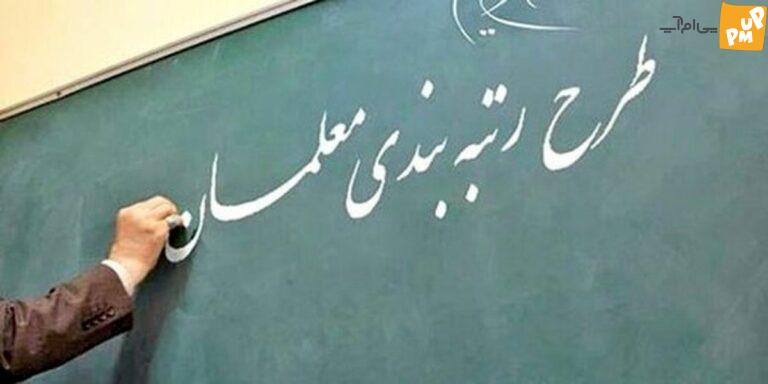 طرح رتبه بندی معلمان
پی‌ام‌آپ
PM UP